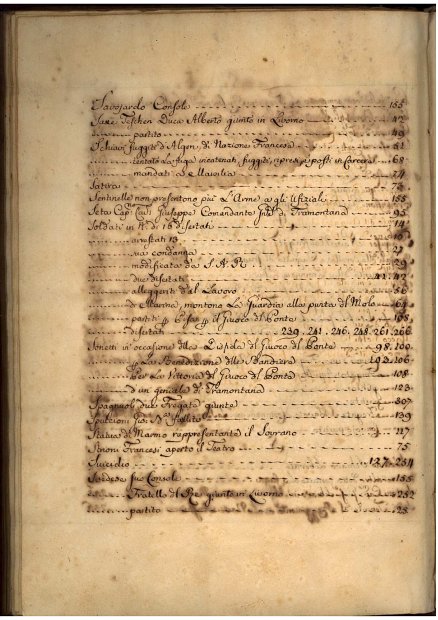 Savojardo Console 155
Saxe Teschen Duca Alberto giunto in Livorno 42
partito 49
Schiavi fuggiti d'Algeri, di Nazione Francese 61
tentato la fuga incatenati, fuggiti, ripresi, e posti in Carcere 68
mandati a Marsilia 74
Satira 73
Sentinelle non presentono più l'Arme a gli Ufiziali 155
Seta Capno Cavr Giuseppe Comandante di Tramontana 95
Soldati in No di 16 disertati 14
arrestati 13
sua condanna 27
modificata da S. A. R. 29
due disertati 41. 42
alleggenti dal Lavoro 56
di Marina, montono la Guardia alla porta del Molo 64
partiti p Pisa p il Giuoco del Ponte 108
disertati 239. 241. 246. 248. 261. 266
Sonetti in occasione delle del Giuoco del Ponte 98. 100
p La Benedizione delle Bandiere 106
per La Vittoria del Giuoco del Ponte 108
d'un geniale di Tramontana 123
Spagnuoli due Fregate giunte 307
139
Statua di Marmo rappresentante il Soprano 117
Francesi aperto il Teatro 75
Suicidio 127. 254
Svedese suo Console 155
Fratello del Re giunto in Livorno 252
partito 25